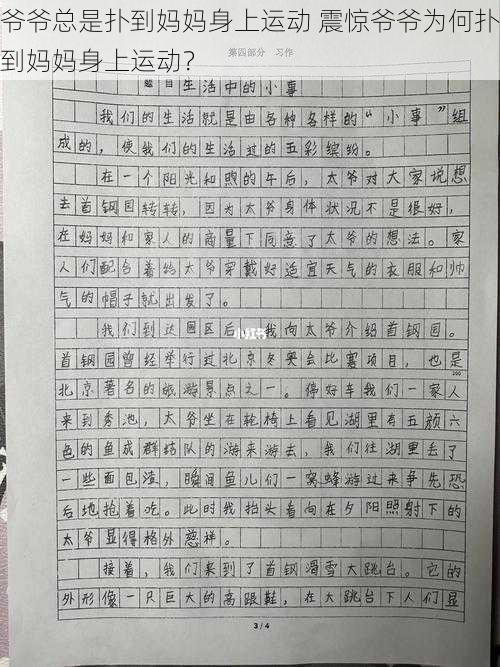 爷爷总是扑到妈妈身上运动 震惊爷爷为何扑
到妈妈身上运动？
第四部分 习作
题目 生活中的小事
我们的生活就是由各种各样的“小事”组
成的，使我们的生活过的五彩缤纷。
在一个阳光和煦的午后，太爷对大家说想
去首钢园转转，因为太爷身体状况不是很好，
在妈妈和家人的商量下同意了太爷的想法。家
人们配合着给太爷穿戴好适宜天气的衣服和帅
气的帽子就出发了。
我们到达园区后，我向太爷介绍首钢园。
小红书
首钢园曾经举行过北京冬奥会比赛项目，也是
200
北京著名的旅游景点之一。停好车我们一家人
来到秀池，太爷坐在轮椅上看见湖里有五颜六
色的鱼成群结队的游来游去，我们往湖里丢了
一些面包渣，瞬间鱼儿们一窝蜂游过来争先恐
后地抢着吃。此时我抬头看向在夕阳照射下的
太爷显得格外慈祥。
接着，我们来到了首钢滑雪大跳台。它的
外形像一只巨大的高跟鞋，在大跳台下人们显
3 / 4